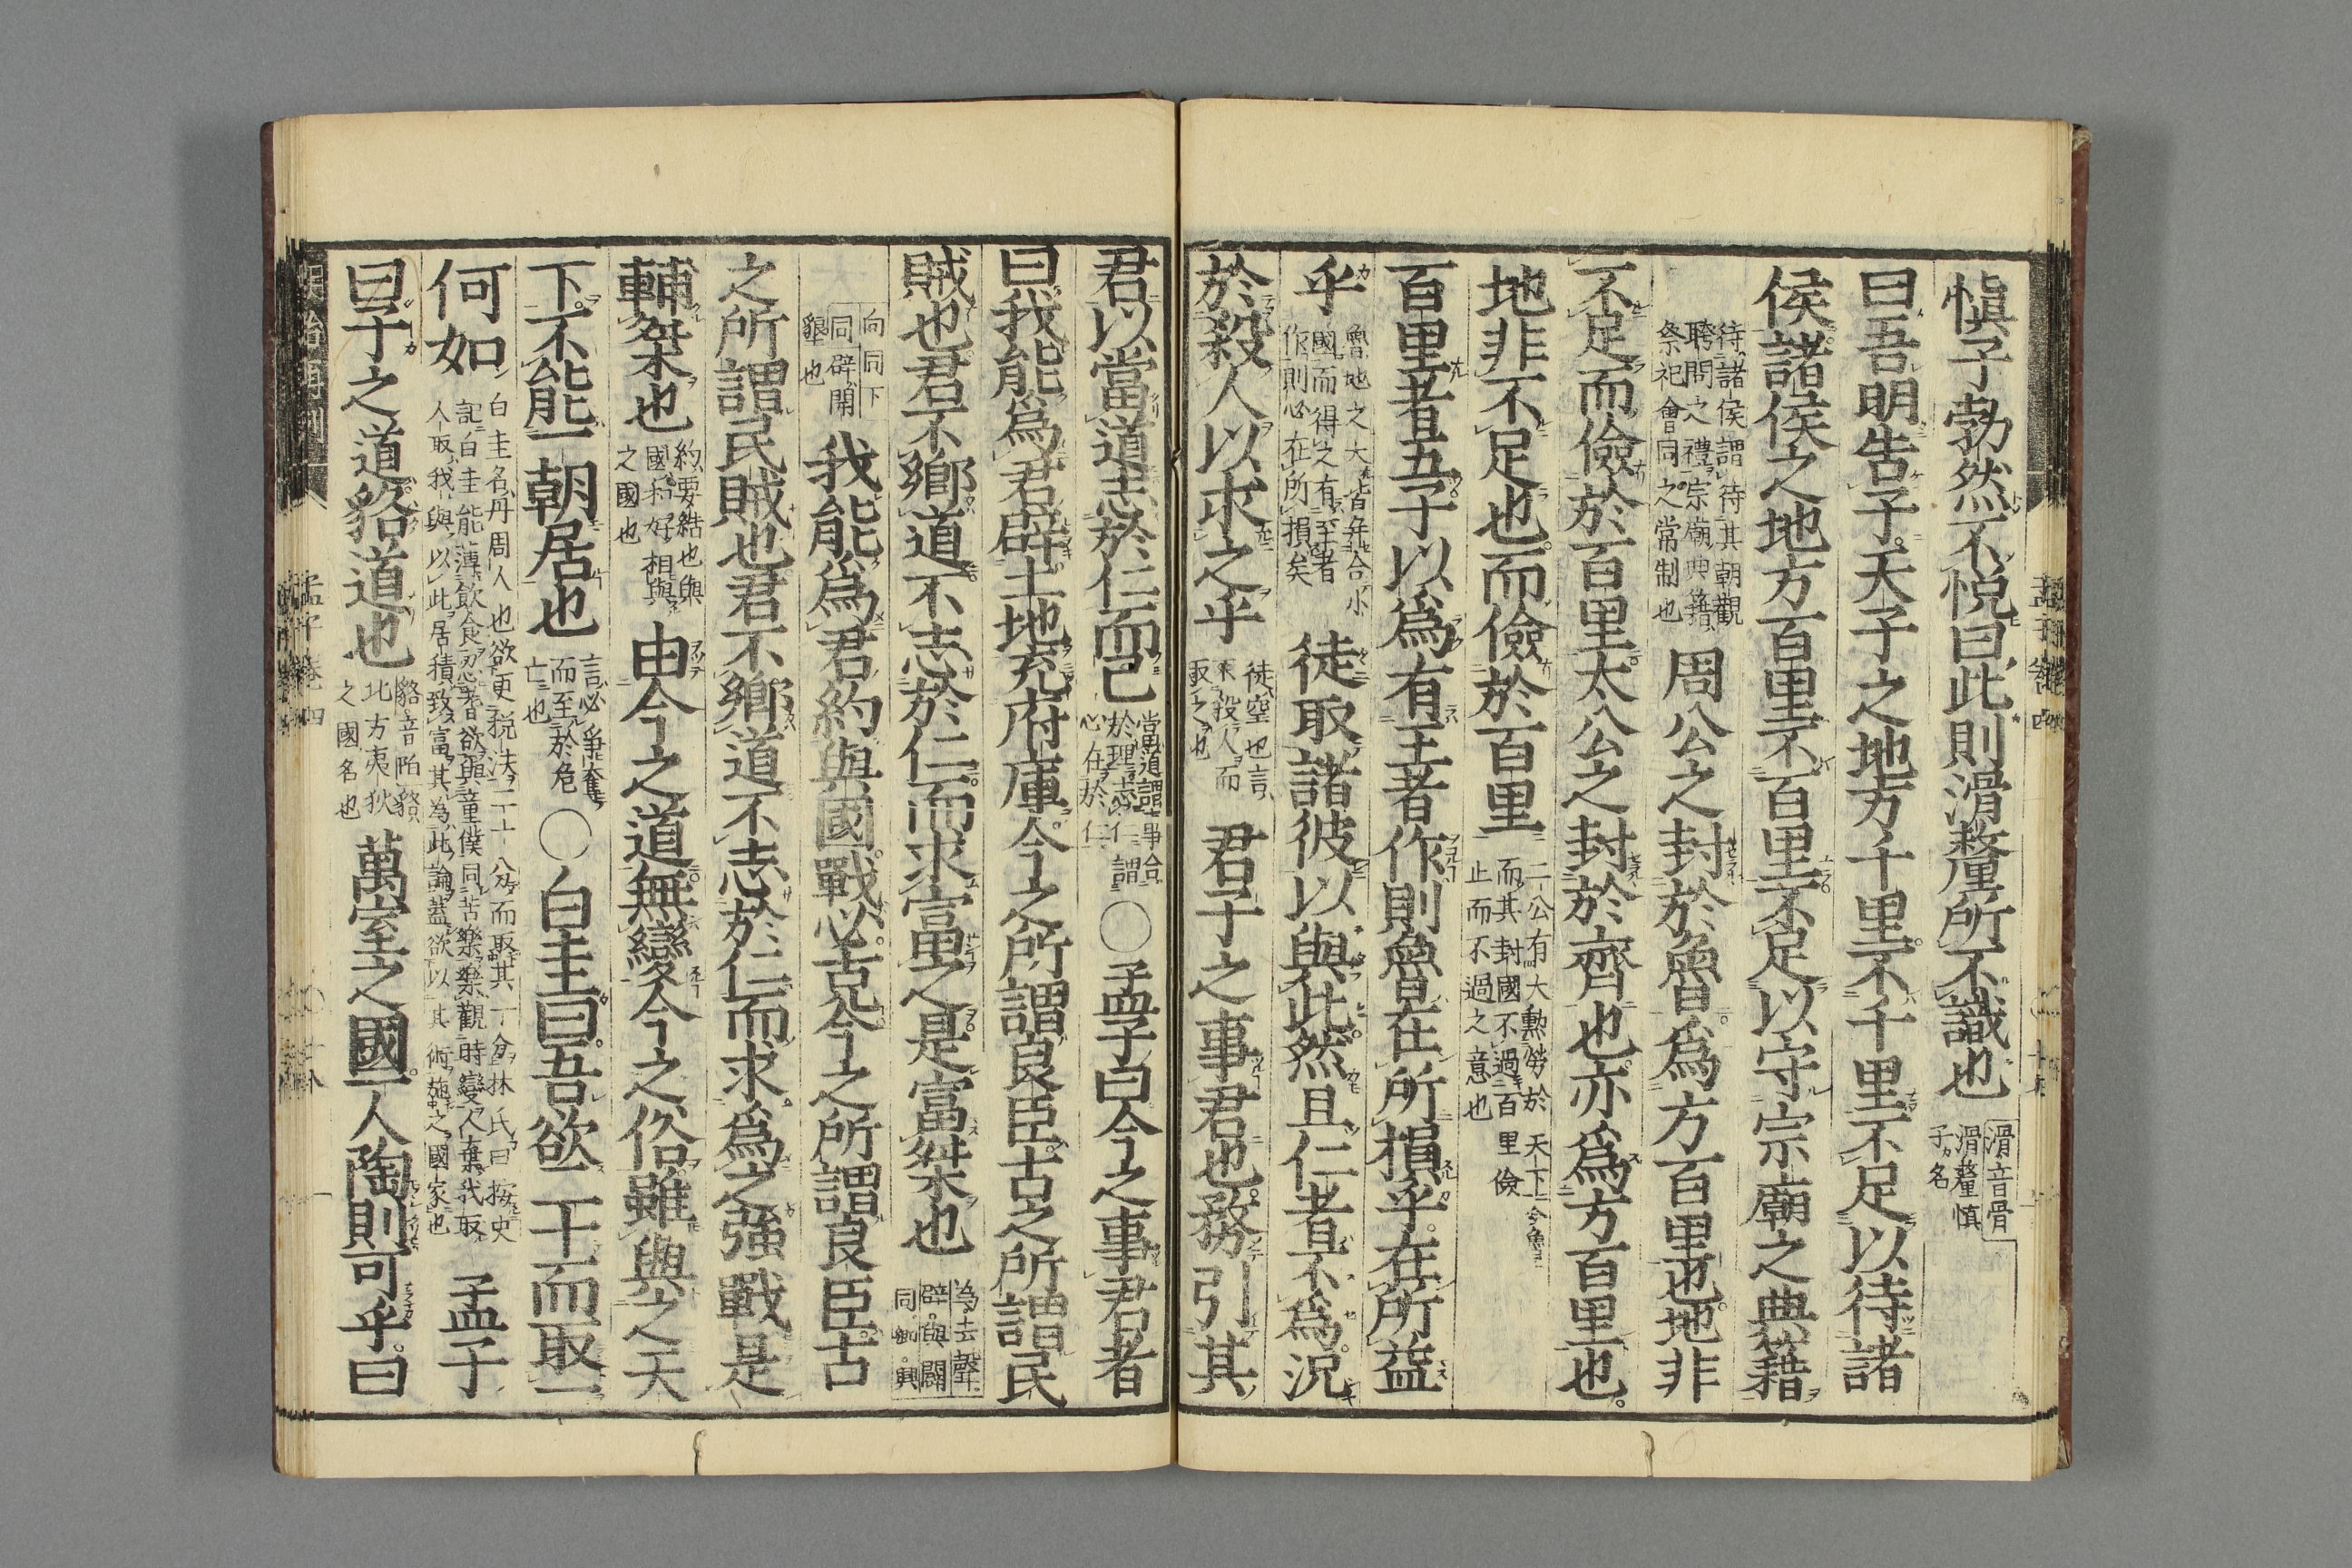 慎子勃然不悅曰此則滑釐所不識也 滑音骨滑釐慎子名
曰吾明告子天子之地方千里不千里不足以待諸
侯諸侯之地方百里不百里不足以守宗廟之典籍
待諸侯謂待其朝覲聘問之禮宗廟典籍祭祀會同之常制也 周公之封於魯爲方百里也地非
不足而儉於百里太公之封於齊也亦爲方百里也
地非不足也而儉於百里 二公有大勲勞於天下而其封國不過百里儉止而不過之意也
百里者五子以爲有王者作則魯在所損乎在所益
乎 魯地之大皆并合小國而得之有王者作則必在所損矣 徒取諸彼以與此然且仁者不爲況
於殺人以求之乎 徒空也言不殺人而取之也 君子之事君也務引其
君以當道志於仁而已 當道謂事合於理志仁謂心在於仁 ○孟子曰今之事君者
曰我能爲君辟土地充府庫今之所謂良臣古之所謂民
賊也君不鄉道不志於仁而求富之是富桀也 為去聲辟與闢同鄉與
向同下同辟開墾也 我能爲君約與國戰必克今之所謂良臣古
之所謂民賊也君不鄉道不志於仁而求爲之強戰是
輔桀也 約要結也與國和好相與之國也 由今之道無變今之俗雖與之天
下不能一朝居也 言必爭奪而至於危亡也 ○白圭曰吾欲二十而取一
何如 白圭名丹周人也欲更税法二十分而取其一分林氏曰按史記白圭能薄飲食忍嗜欲與童僕同苦樂樂觀時變人棄我取人取我與以此居積致富其為此論蓋欲以其術施之國家也 孟子
曰子之道貉道也 貉音陌貉北方夷狄之國名也 萬室之國一人陶則可乎曰